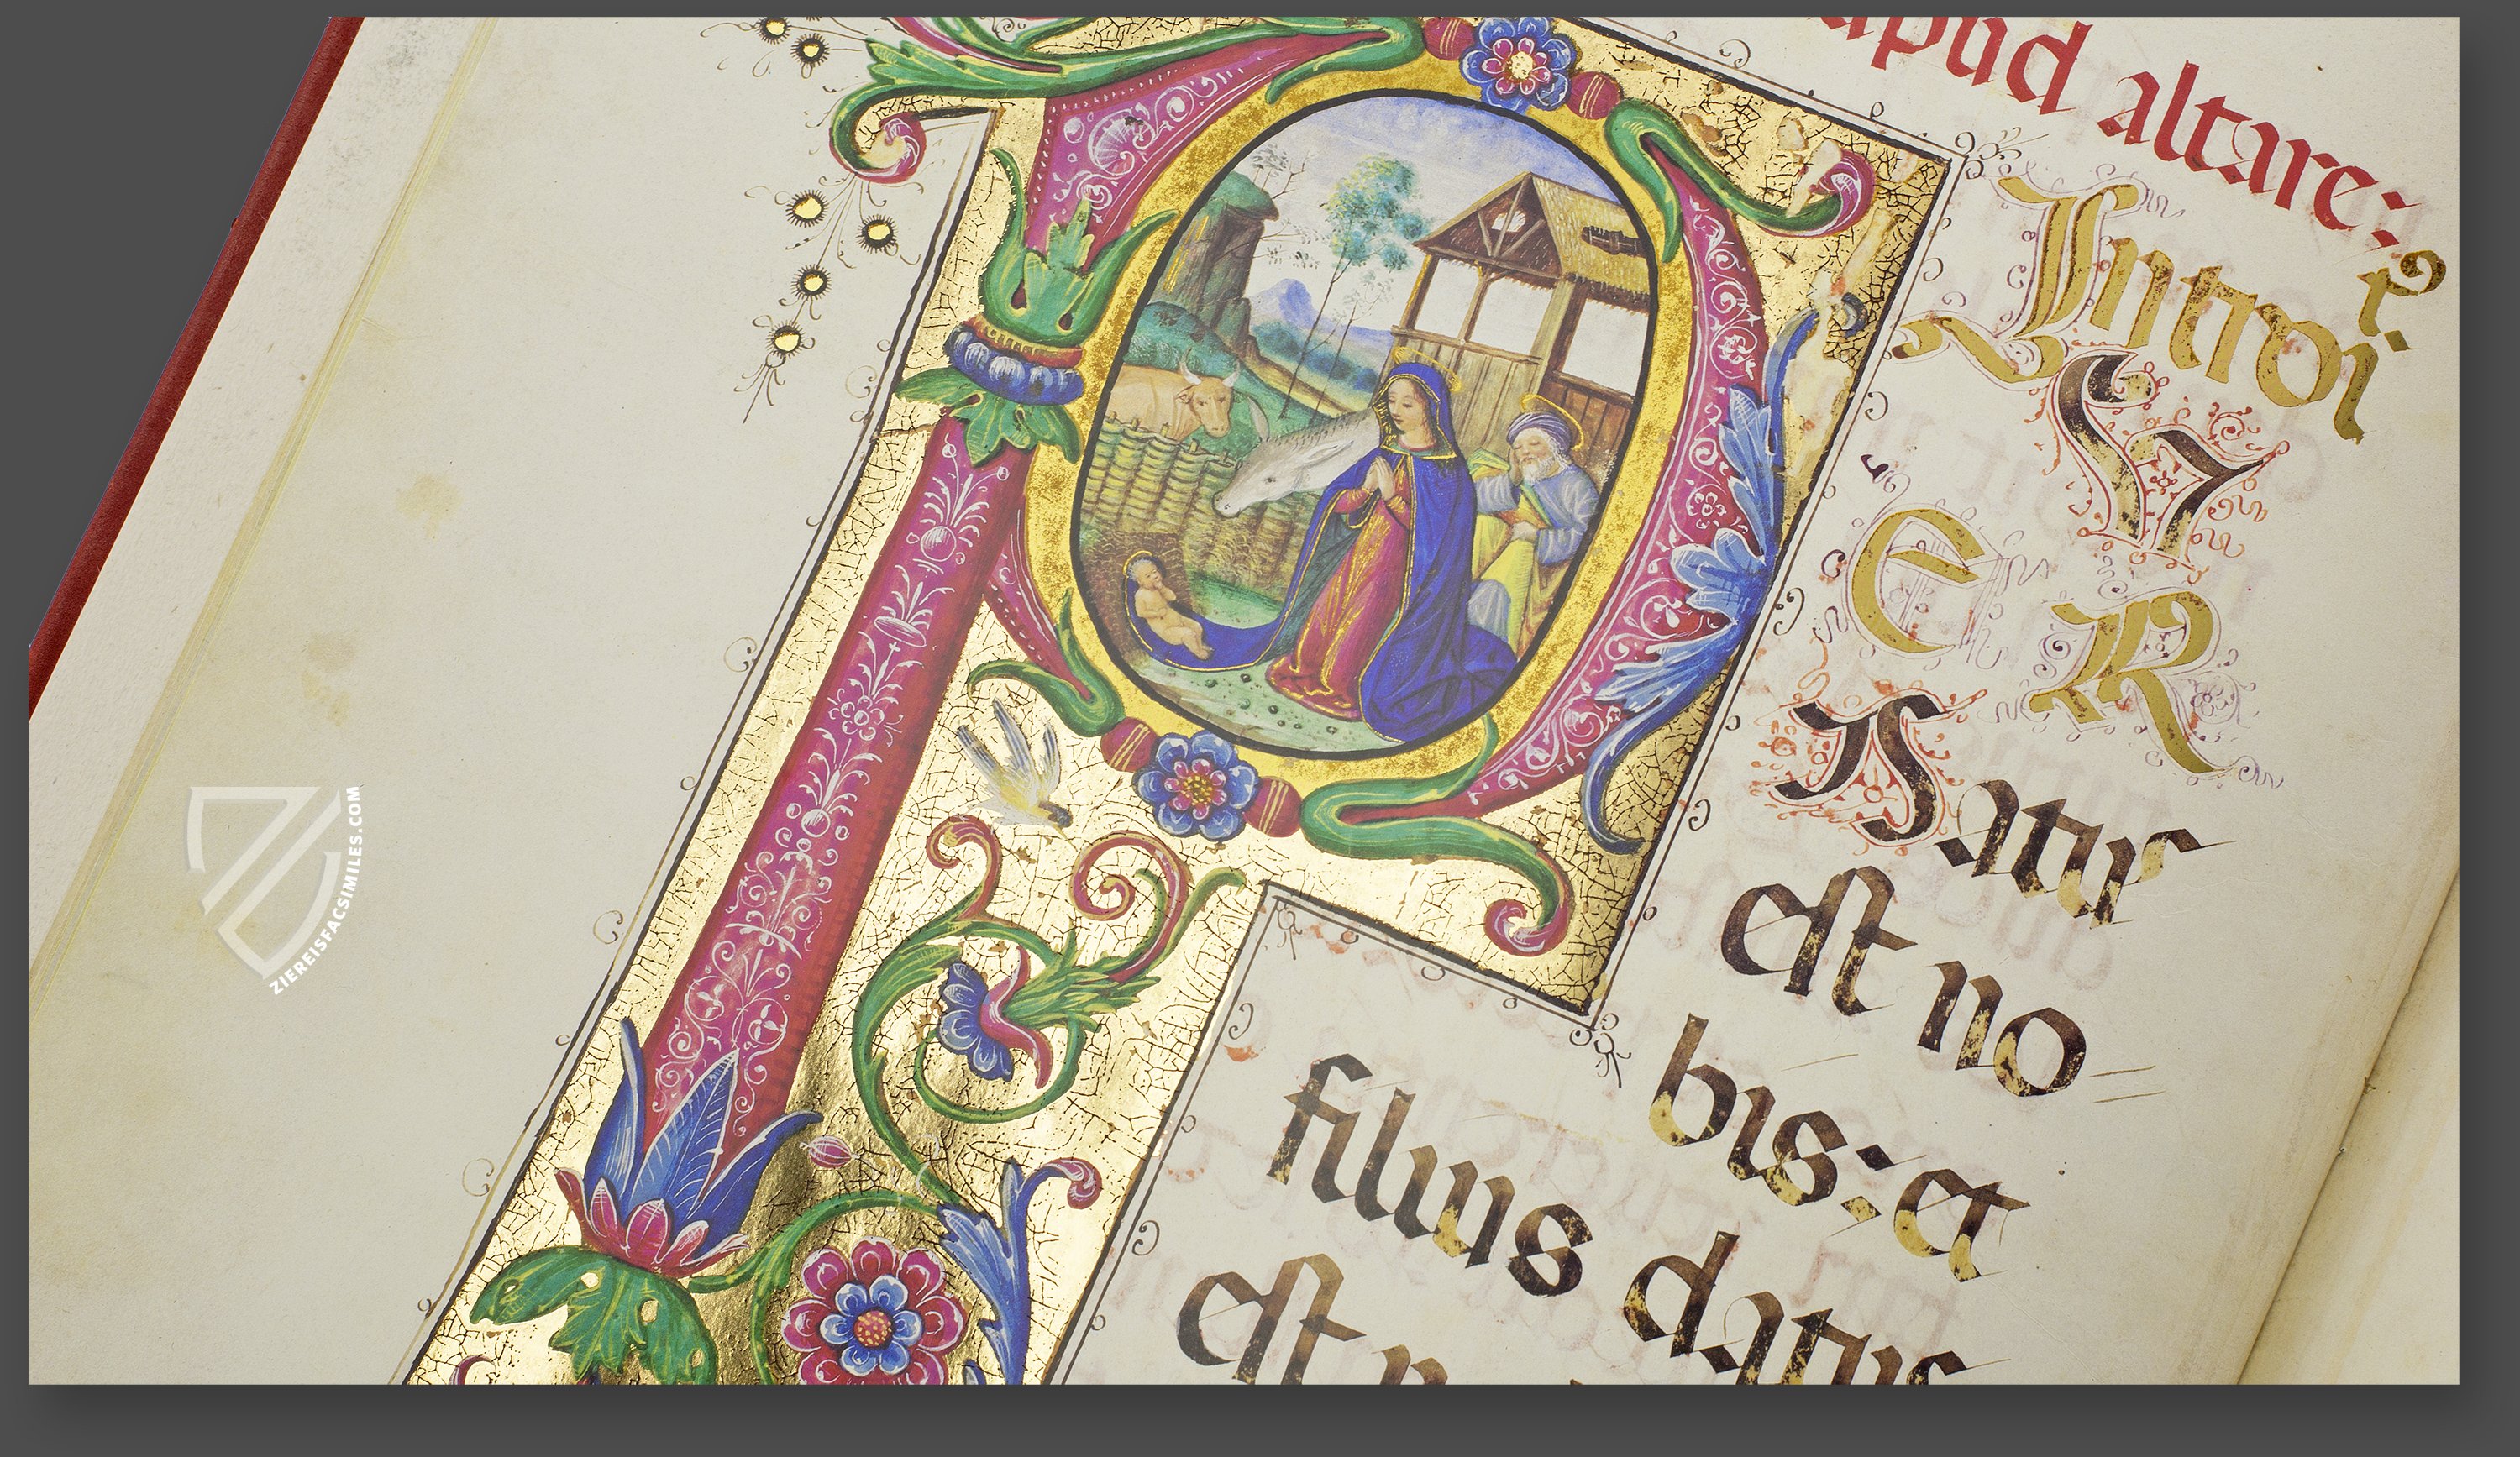 apud altare:
Introi
PU
ER
Natus
est no=
bis: et
filius datus
est
ZIEREISFACSIMILES.COM